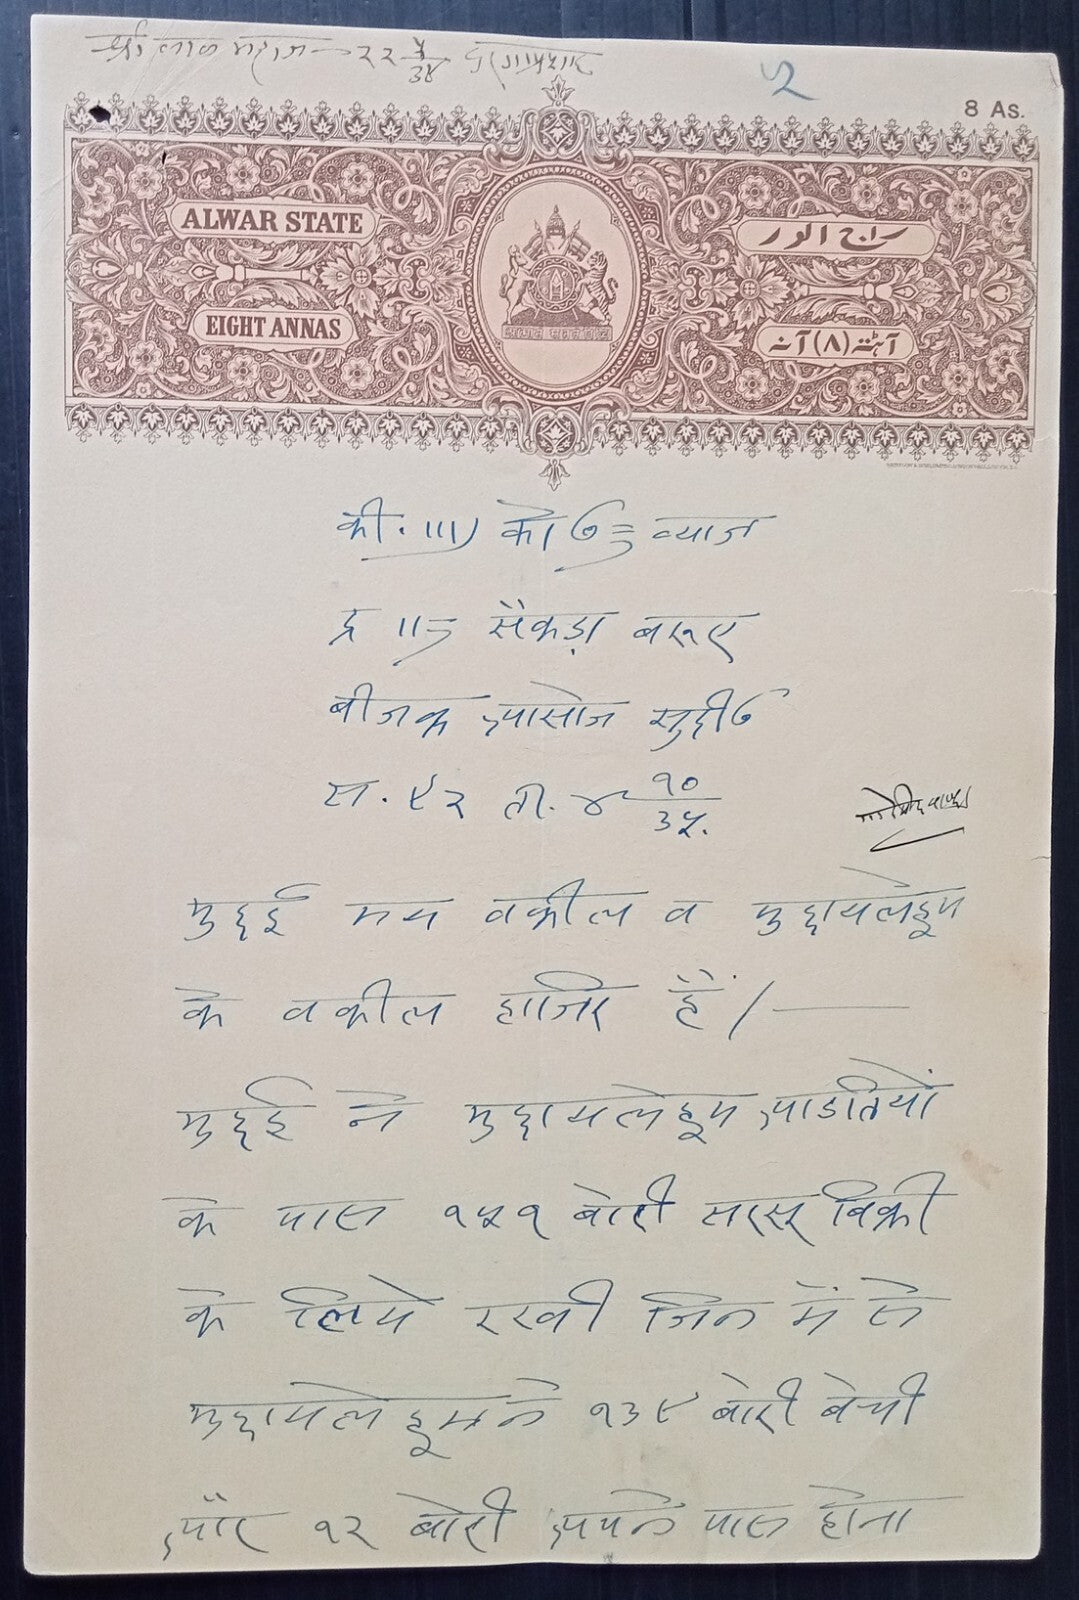 श्री लाल महाराज २२ ५/३४
५२
8 As.
ALWAR STATE
راج الور
EIGHT ANNAS
آٹھ (۸) آنہ
की. ।।।) को ६ ≡) व्याज
द्र ।।=) सैकड़ा बरूए
बीजक आसोज सुदी ६
स. ९२ ता. ४ १०/३५.
मुद्दई मय वकील व मुद्दायलेहूम
के वकील हाजिर हैं /—
मुद्दई ने मुद्दायलेहूम आडतियों
के पास १५१ बोरी सरसू बिक्री
के लिये रखी जिन में से
मुद्दायलेहूम ने १३९ बोरी बेची
और १२ बोरी अपने पास होना